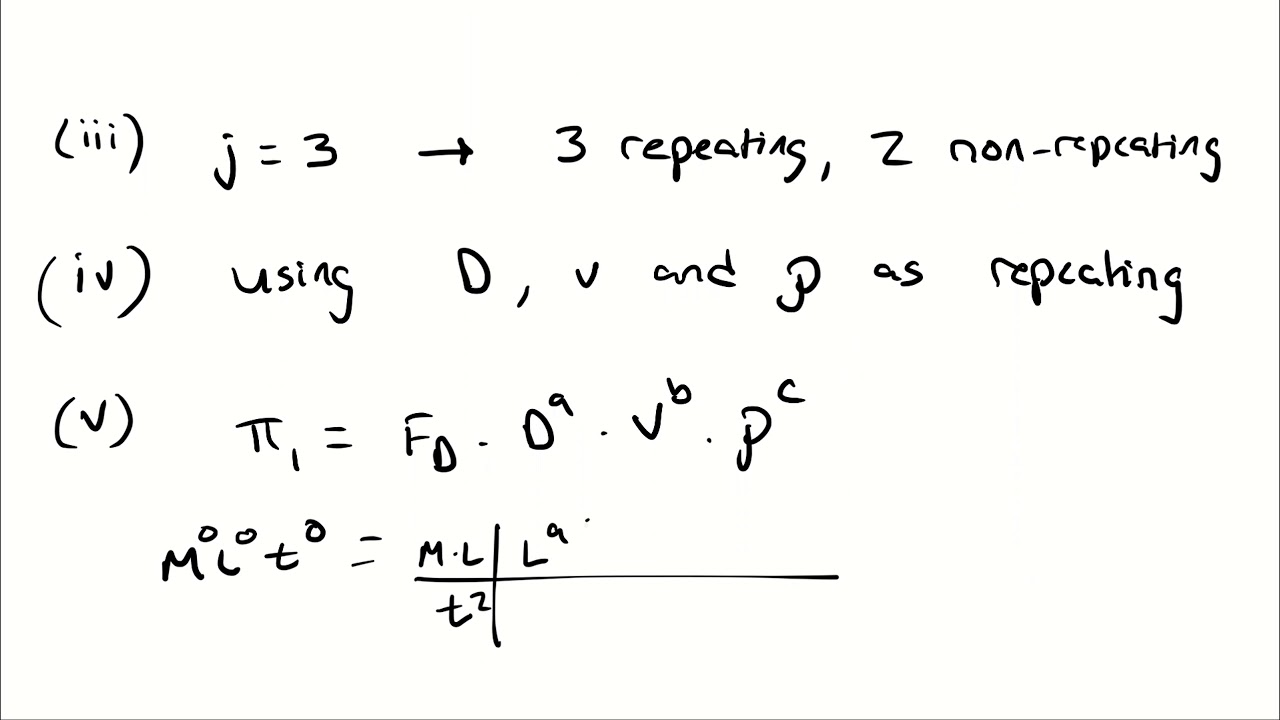 (iii) j = 3 → 3 repeating, 2 non-repeating
(iv) using D, v and ρ as repeating
(v) π₁ = F_D · Dᵃ · Vᵇ · ρᶜ
M⁰L⁰t⁰ = M·L | Lᵃ
t² |